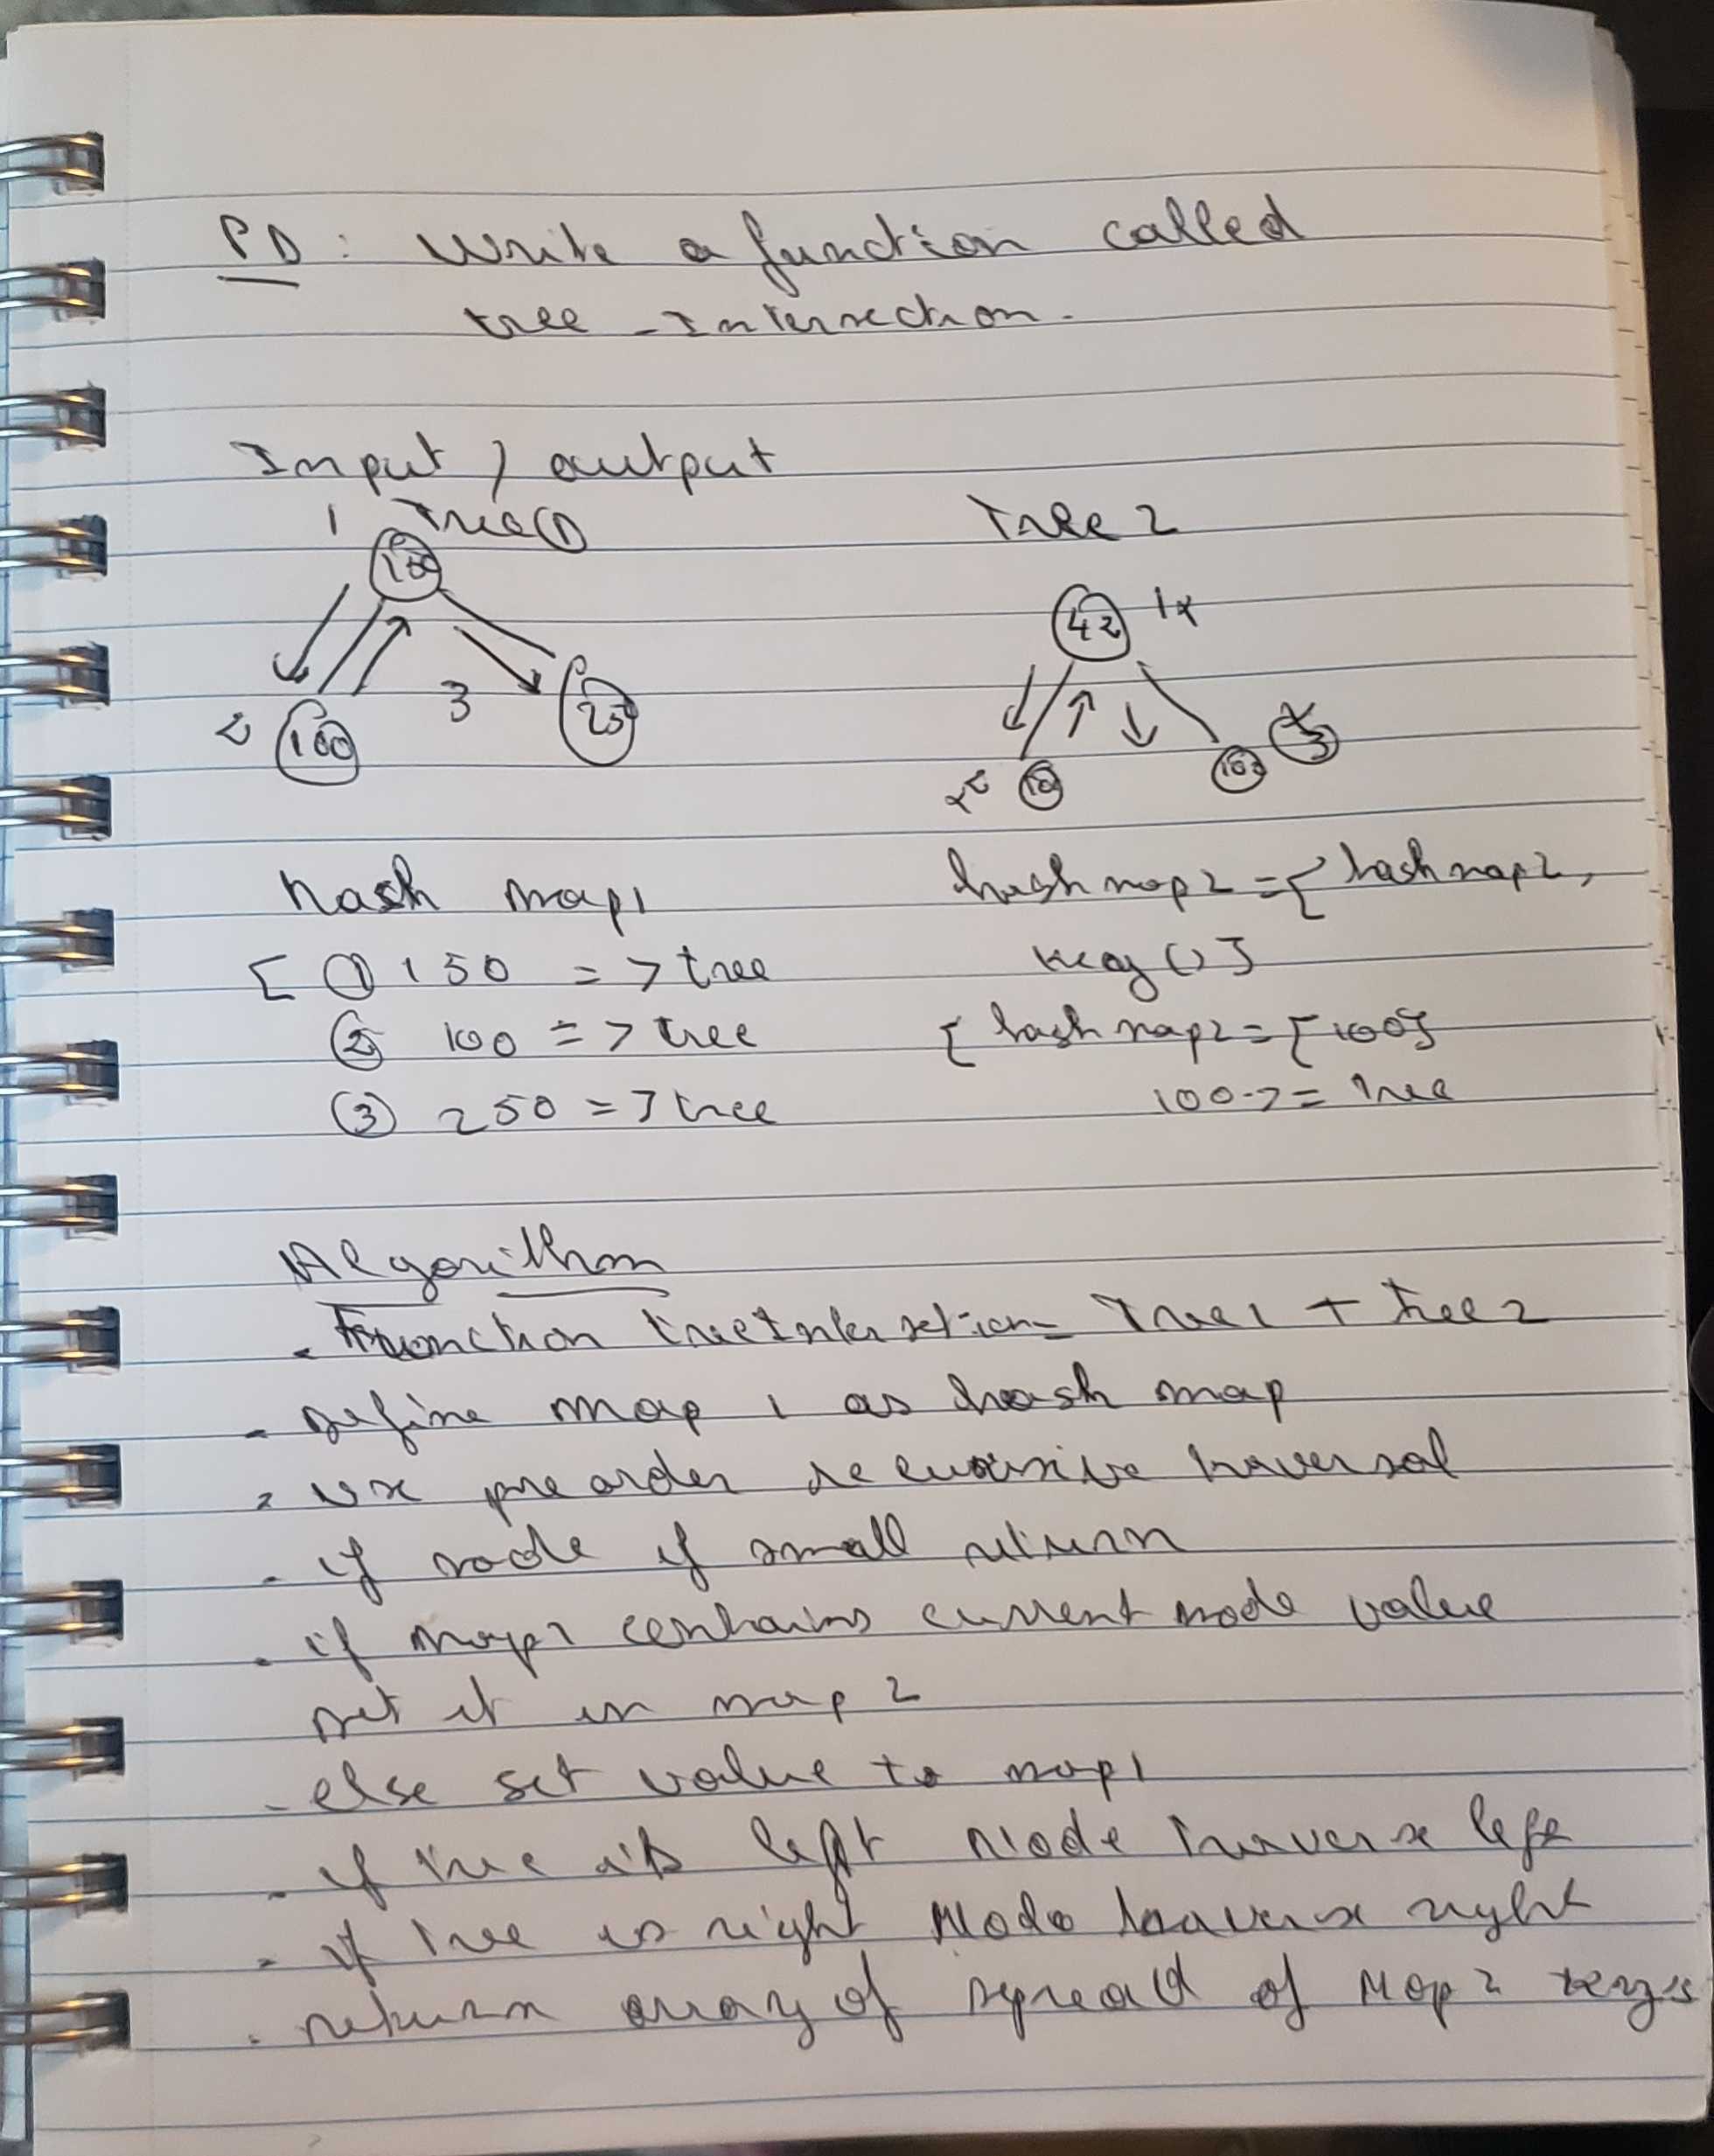 PD: Write a function called
tree-Intersection.
Input / output
1 Tree ①
Tree 2
150
42 1x
2 100
3
250
10
100
3
hash map1
hashmap2 = { hashmap2,
[ ① 150 => tree
key () }
② 100 => tree
{ hashmap2 = {100}
③ 250 => tree
100 -> = tree
Algorithm
- Function treeIntersection = Tree1 + Tree 2
- Define map 1 as hash map
- use preorder recursive traversal
- if node if small return
- if map1 contains current node value
set it in map 2
- else set value to map1
- if tree is left Node traverse left
- if tree is right Node traverse right
- return array of spread of Map 2 keys